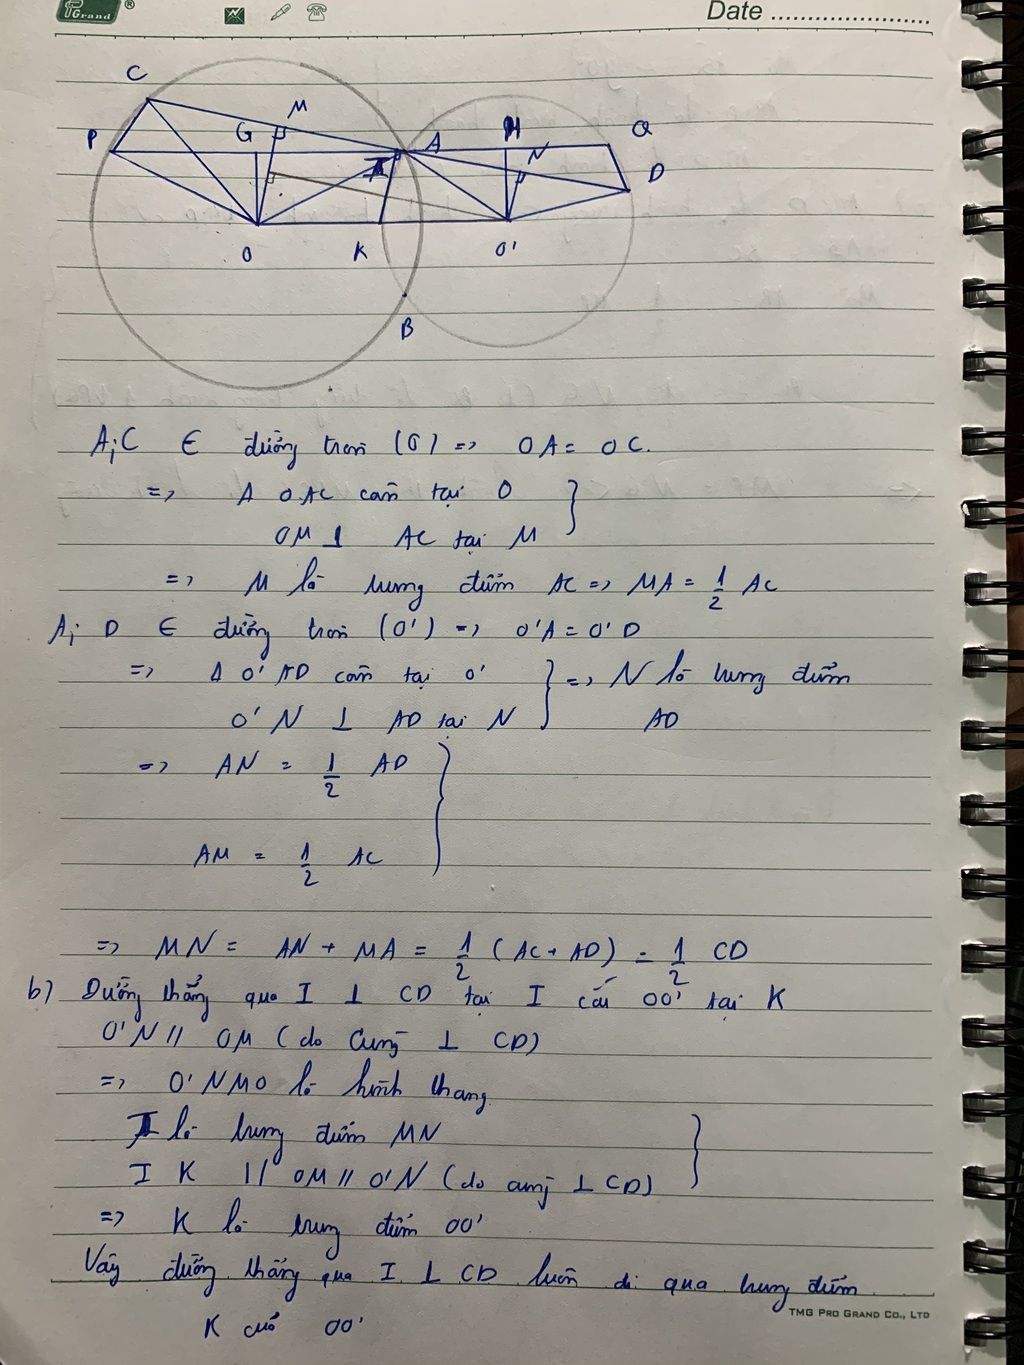 Grand ®
Date
C
M
P
G
A
H
Q
N
D
I
O
K
O'
B
A; C ∈ đường tròn (O) => OA = OC.
=> Δ OAC cân tại O
OM ⊥ AC tại M
=> M là trung điểm AC => MA = 1/2 AC
A; D ∈ đường tròn (O') => O'A = O'D
=> Δ O'AD cân tại O'
=> N là trung điểm
O'N ⊥ AD tại N
AD
=> AN = 1/2 AD
AM = 1/2 AC
=> MN = AN + MA = 1/2 (AC + AD) = 1/2 CD
b) Đường thẳng qua I ⊥ CD tại I cắt OO' tại K
O'N // OM (do cùng ⊥ CD)
=> O'NMO là hình thang
I là trung điểm MN
IK // OM // O'N (do cùng ⊥ CD)
=> K là trung điểm OO'
Vậy đường thẳng qua I ⊥ CD luôn đi qua trung điểm
K của OO'
TMG PRO GRAND CO., LTD